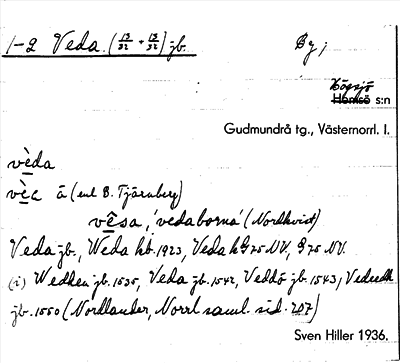 1-2 Veda (13/32 + 13/32) jb. By;
Högsjö
Hemsö s:n
Gudmundrå tg., Västernorrl. l.
vèda
vèa å (enl B. Tjärnberg)
vêsa, 'vedaborna' (Nordkvist)
Veda jb., Weda kb. 1923, Veda kG 75 NV, G 75 NV.
(i) Wedhen jb. 1535, Veda jb. 1542, Veddö jb. 1543, 
jb. 1550 (Nordlander, Norrl saml. sid. 207)
Sven Hiller 1936.